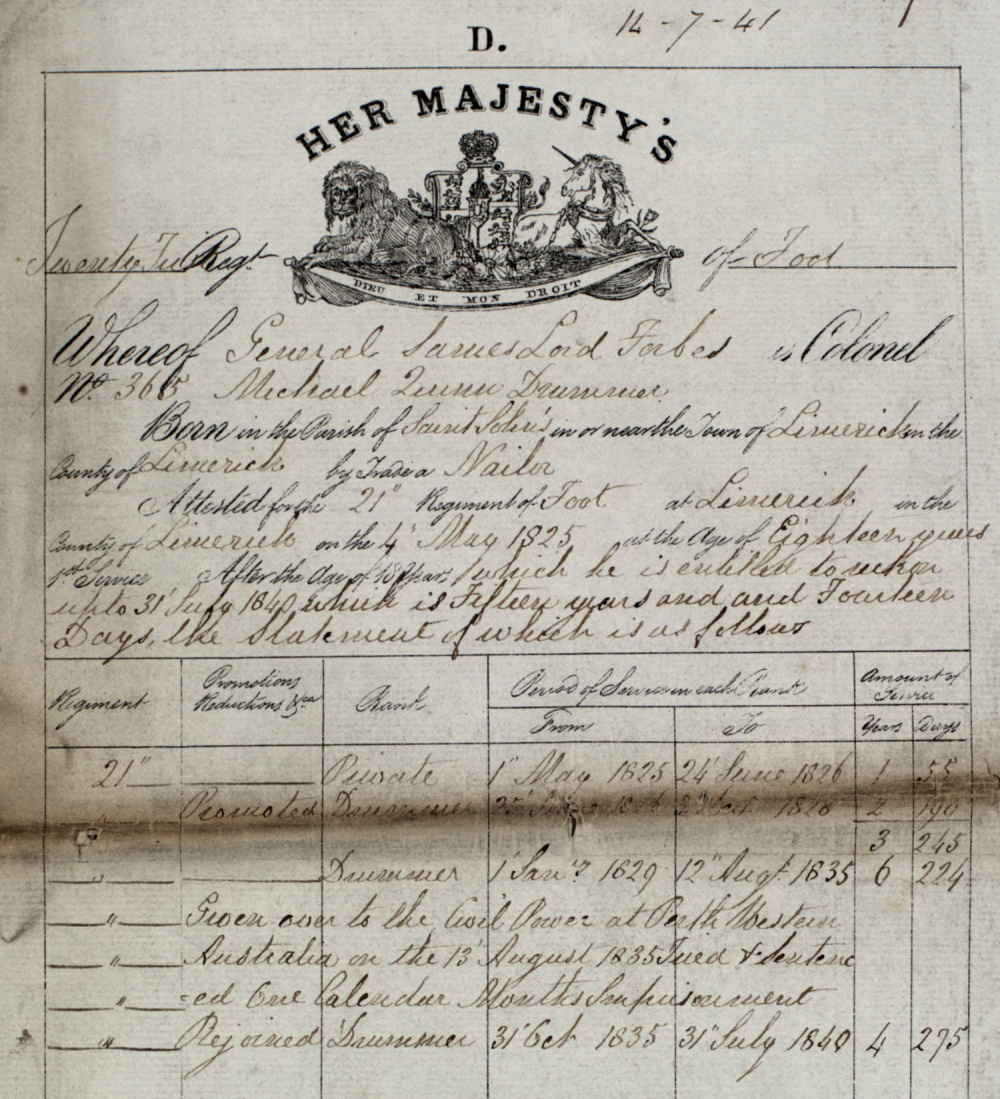 14-7-41
D.
HER MAJESTY'S
DIEU ET MON DROIT
Twenty First Regt of Foot
Whereof General James Lord Forbes is Colonel
No. 365 Michael Quinn Drummer
Born in the Parish of Saint John's in or near the Town of Limerick in the
County of Limerick by Trade a Nailor
Attested for the 21" Regiment of Foot at Limerick in the
County of Limerick on the 4" May 1825 at the Age of Eighteen years
1st Service After the Age of 18 Years which he is entitled to reckon
up to 31' July 1840 which is Fifteen years and and Fourteen
Days, the Statement of which is as follows
Regiment Promotions Reductions &ca Rank Period of Service in each Rank Amount of Service
From To Years Days
21" Private 1" May 1825 24' June 1826 1 55
" Promoted Drummer 1828 2 190
" 3 245
" Drummer 1' Jany 1829 12" Augt 1835 6 224
" Given over to the Civil Power at Perth Western
" Australia on the 13' August 1835 Tried & Sentenc
" =ed One Calendar Months Imprisonment
" Rejoined Drummer 31' Oct 1835 31" July 1840 4 275